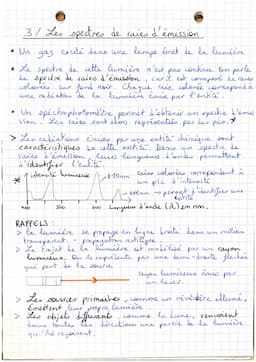 3/ Les spectres de raies d'émission
• Un gaz excité dans une lampe émet de la lumière.
• Le spectre de cette lumière n'est pas continu. On parle
de spectre de raies d'émission, car il est composé de raies
colorées sur fond noir. Chaque raie colorée correspond à
une radiation de la lumière émise par l'entité.
• Un spectrophotomètre permet d'obtenir un spectre d'émis
sion. Les raies sont alors représentées par des pics. *
> Les radiations émises par une entité chimique sont
caractéristiques de cette entité. Dans un spectre de
raies d'émission, leurs longueurs d'ondes permettent
d'identifier l'entité.
* intensité lumineuse
raies colorées correspondent à
un pic d'intensité
→ permet d'identifier une
entité
400 500 600 Longueur d'onde (λ) en nm.
RAPPELS :
> La lumière se propage en ligne droite dans un milieu
transparent : propagation rectiligne.
> Le trajet de la lumière est modélisé par un rayon
lumineux. On le représente par une demi-droite fléchée
qui part de la source.
rayon lumineux émis par
un laser.
> Les sources primaires, comme un réverbère allumé,
émettent leur propre lumière.
> Les objets diffusant, comme la lune, renvoient
dans toutes les directions une partie de la lumière
qu'ils reçoivent.